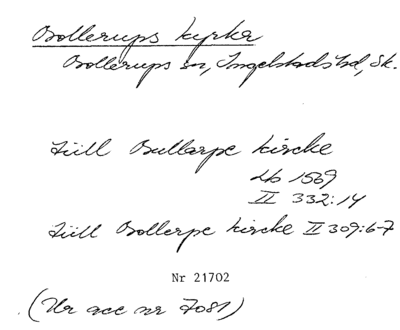 Bollerups kyrka
Bollerups sn, Ingelstads hd, Sk.
Tiill Bullarpe kircke
Lb 1569
II 332:14
Tiill Bollerpe kircke II 309:6-7
Nr 21702
(Ur acc nr 7081)